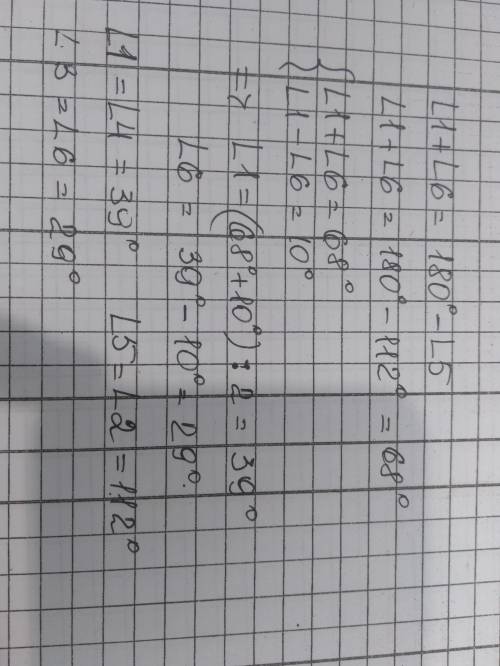 ∠1+∠6 = 180° - ∠5
∠1+∠6 = 180° - 112° = 68°
{ ∠1+∠6 = 68°
{ ∠1 - ∠6 = 10°
=> ∠1 = (68° + 10°) : 2 = 39°
∠6 = 39° - 10° = 29°.
∠1 = ∠4 = 39° ∠5 = ∠2 = 112°
∠3 = ∠6 = 29°